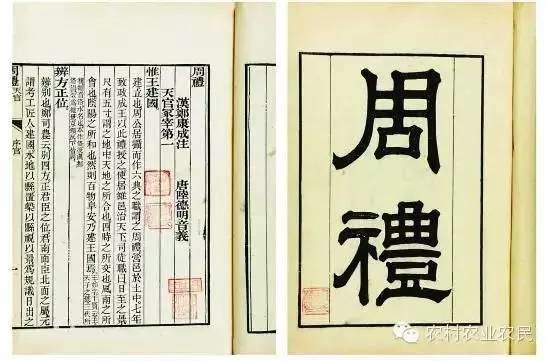 周禮
漢鄭康成注　唐陸德明音義
天官冢宰第一
惟王建國
建立也周公居攝而作六典之職謂之周禮營邑於土中七年
致政成王以此禮授之使居雒邑治天下司徒職曰日至之景
尺有五寸謂之地中天地之所合也四時之所交也風雨之所
會也陰陽之所和也然則百物阜安乃建王國焉
辨方正位
辨別也鄭司農云別四方正君臣之位君南面臣北面之屬元
謂考工匠人建國水地以縣置槷以縣視以景為規識日出之
周禮 天官 序官 一
周禮
农村农业农民